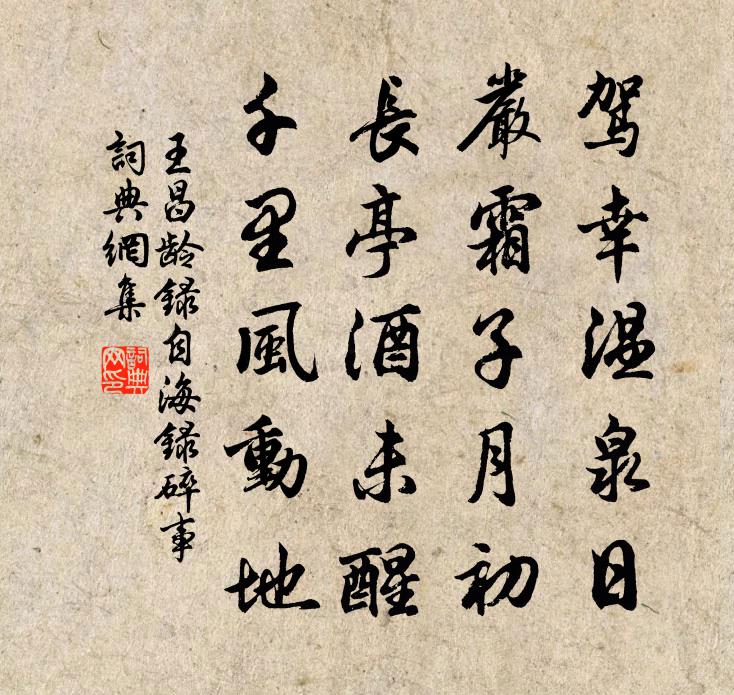 駕幸温泉日
嚴霜子月初
長亭酒未醒
千里風動地
王昌龄録自海録碎事
詞典網集
詞典网印